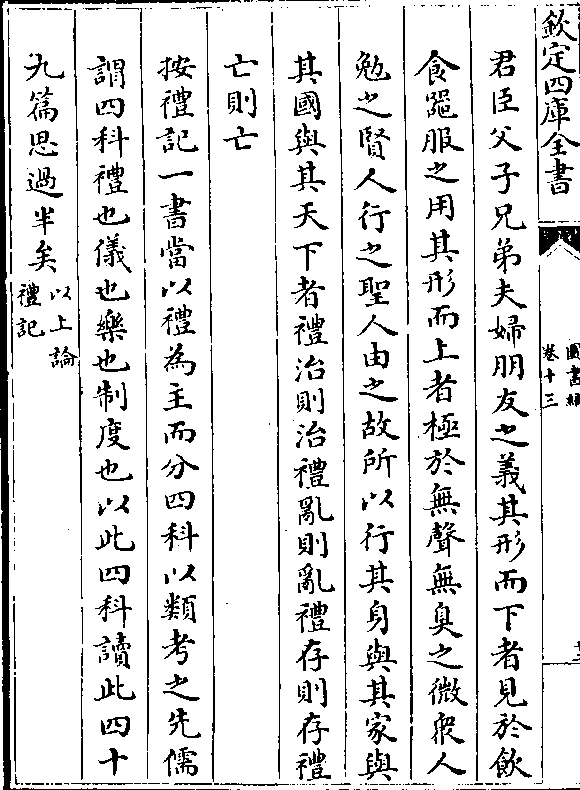 欽定四庫全書
圖書編
卷十三
君臣父子兄弟夫婦朋友之義其形而下者見於飲
食器服之用其形而上者極於無聲無臭之微衆人
勉之賢人行之聖人由之故所以行其身與其家與
其國與其天下者禮治則治禮亂則亂禮存則存禮
亡則亡
按禮記一書當以禮為主而分四科以類考之先儒
謂四科禮也儀也樂也制度也以此四科讀此四十
九篇思過半矣以上論
禮記